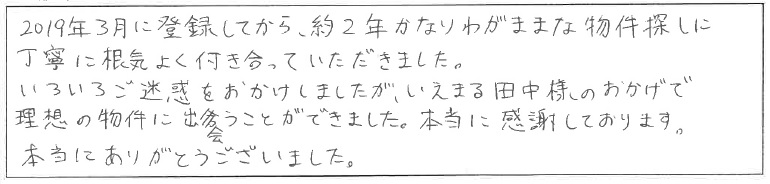 2019年3月に登録してから、約2年かなりわがままな物件探しに
丁寧に根気よく付き合っていただきました。
いろいろご迷惑をおかけしましたが、いえまる田中様のおかげで
理想の物件に出会うことができました。本当に感謝しております。
本当にありがとうございました。